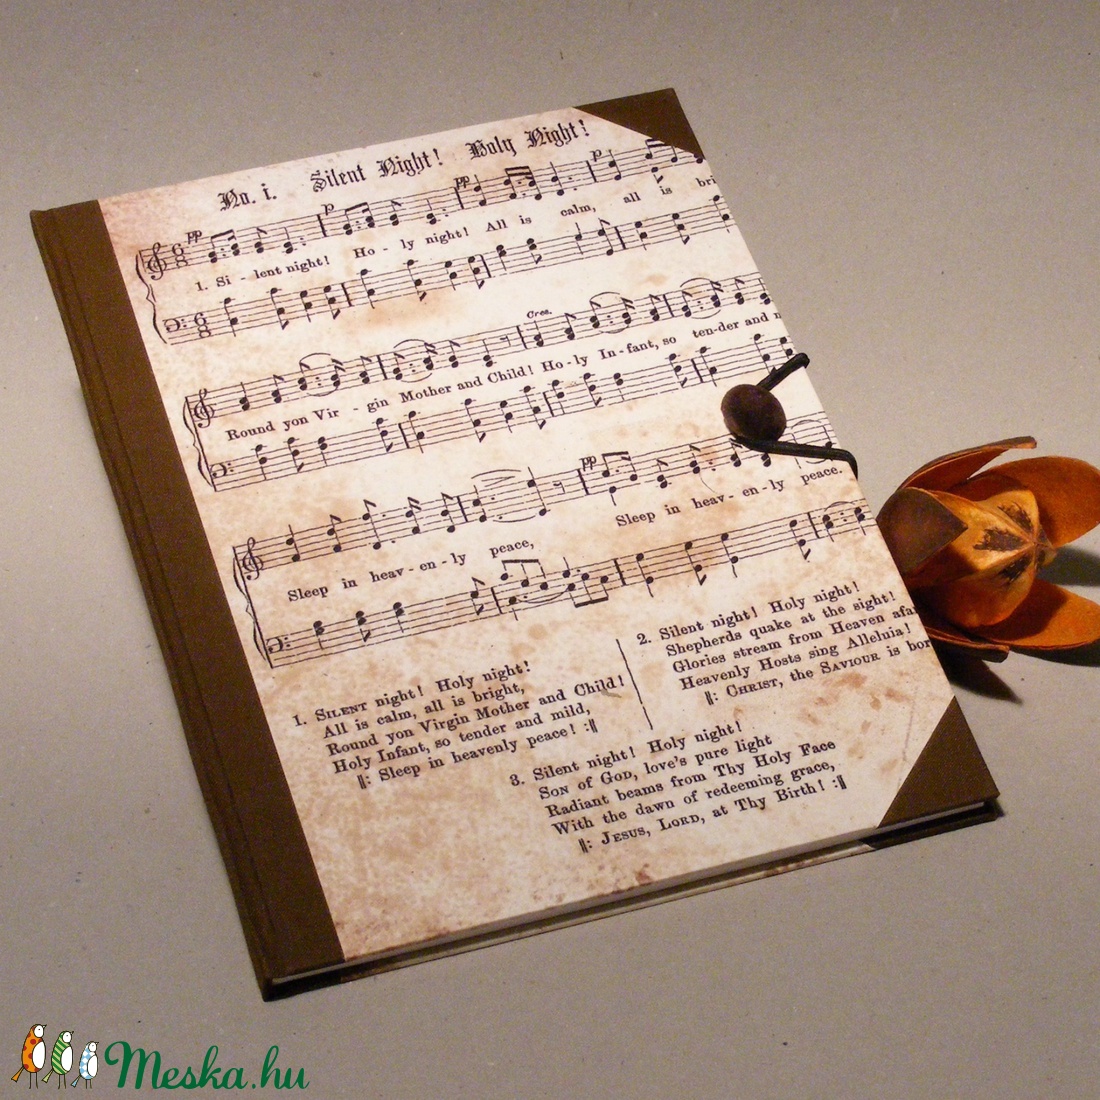 No. i. Silent Night! Holy Night!
pp p pp p
1. Si - lent night! Ho - ly night! All is calm, all is bri
Cres.
Round yon Vir - gin Mother and Child! Ho - ly In - fant, so ten-der and
pp
Sleep in heav - en - ly peace, Sleep in heav - en - ly peace.
1. SILENT night! Holy night!
All is calm, all is bright,
Round yon Virgin Mother and Child!
Holy Infant, so tender and mild,
𝄆 Sleep in heavenly peace! 𝄇
2. Silent night! Holy night!
Shepherds quake at the sight!
Glories stream from Heaven afa
Heavenly Hosts sing Alleluia!
𝄆 CHRIST, the SAVIOUR is bor
3. Silent night! Holy night!
SON of GOD, love's pure light
Radiant beams from Thy Holy Face
With the dawn of redeeming grace,
𝄆 JESUS, LORD, at Thy Birth! 𝄇
Meska.hu